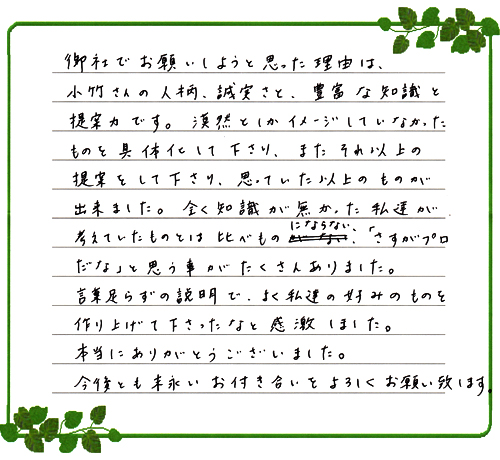 御社でお願いしようと思った理由は、
小竹さんの人柄、誠実さと、豊富な知識と
提案力です。漠然としかイメージしていなかった
ものを具体化して下さり、またそれ以上の
提案をして下さり、思っていた以上のものが
出来ました。全く知識が無かった私達が
考えていたものとは比べものにならない、「さすがプロ
だな」と思う事がたくさんありました。
言葉足らずの説明で、よく私達の好みのものを
作り上げて下さったなと感激しました。
本当にありがとうございました。
今後とも末永いお付き合いをよろしくお願い致します。